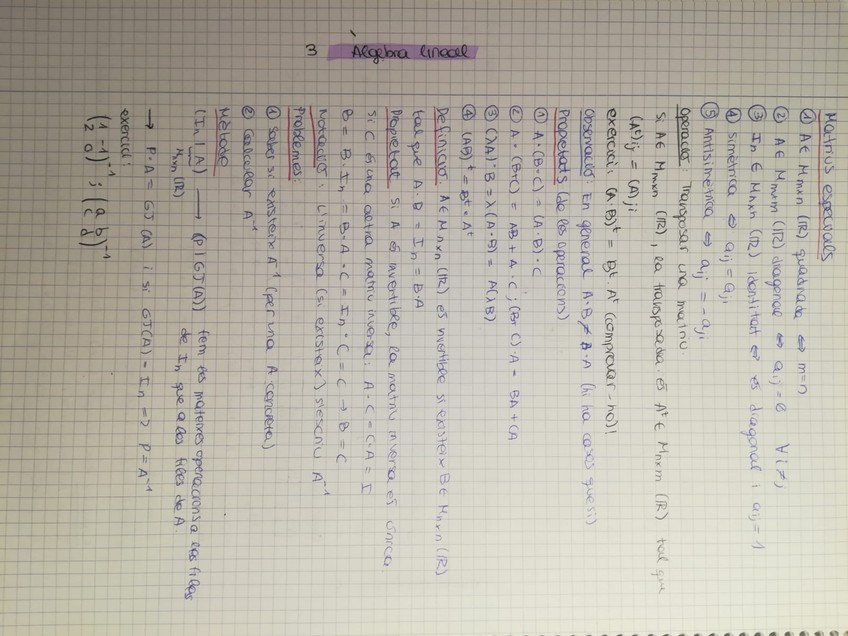 3 Àlgebra lineal
Matrius especials
① A ∈ Mmxn (ℝ) quadrada ⇔ m=n
② A ∈ Mnxm (ℝ) diagonal ⇔ aij = 0 ∀ i ≠ j
③ In ∈ Mnxn (ℝ) identitat ⇔ és diagonal i aij = 1
④ simètrica ⇔ aij = aji
⑤ Antisimètrica ⇔ aij = -aji
Operació: Transposar una matriu
Si A ∈ Mmxn (ℝ), la transposada és A^t ∈ Mnxm (ℝ) tal que
(A^t)ij = (A)ji
exercici: (A·B)^t = B^t · A^t (comprovar-ho)!
Observació: En general A·B ≠ B·A (hi ha casos que sí)
Propietats (de les operacions)
① A·(B·C) = (A·B)·C
② A·(B+C) = AB + A·C ; (B+C)·A = BA + CA
③ (λA)·B = λ(A·B) = A(λB)
④ (AB)^t = B^t · A^t
Definició: A ∈ Mnxn (ℝ) és invertible si existeix B ∈ Mnxn (ℝ)
tal que A·B = In = B·A
Propietat: si A és invertible, la matriu inversa és única.
Si C és una altra matriu inversa: A·C = C·A = I
B = B·In = B·A·C = In·C = C → B = C
Notació: L'inversa (si existeix) s'escriu A^-1
Problemes:
① Saber si existeix A^-1 (per una A concreta)
② Calcular A^-1
Mètode
(In | A) → (P | GJ(A)) fem les mateixes operacions a les files
Mnxn (ℝ) de In que a les files de A.
→ P·A = GJ (A) i si GJ(A) = In => P = A^-1
exercici:
(1 -1
2 0)^-1 ; (a b
c d)^-1